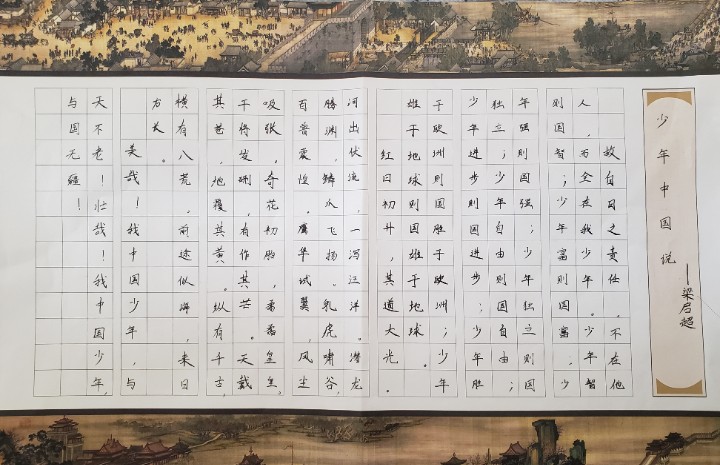 少年中国说
——梁启超
故今日之责任。不在他
人，而全在我少年。少年智
则国智；少年富则国富；少
年强则国强；少年独立则国
独立；少年自由则国自由；
少年进步则国进步；少年胜
于欧洲则国胜于欧洲；少年
雄于地球则国雄于地球。
红日初升，其道大光。
河出伏流，一泻汪洋。潜龙
腾渊，鳞爪飞扬。乳虎啸谷，
百兽震惶。鹰隼试翼，风尘
吸张。奇花初胎，矞矞皇皇。
干将发硎，有作其芒。天戴
其苍，地履其黄。纵有千古，
横有八荒，前途似海，来日
方长。
美哉！我中国少年，与
天不老！壮哉！我中国少年，
与国无疆！